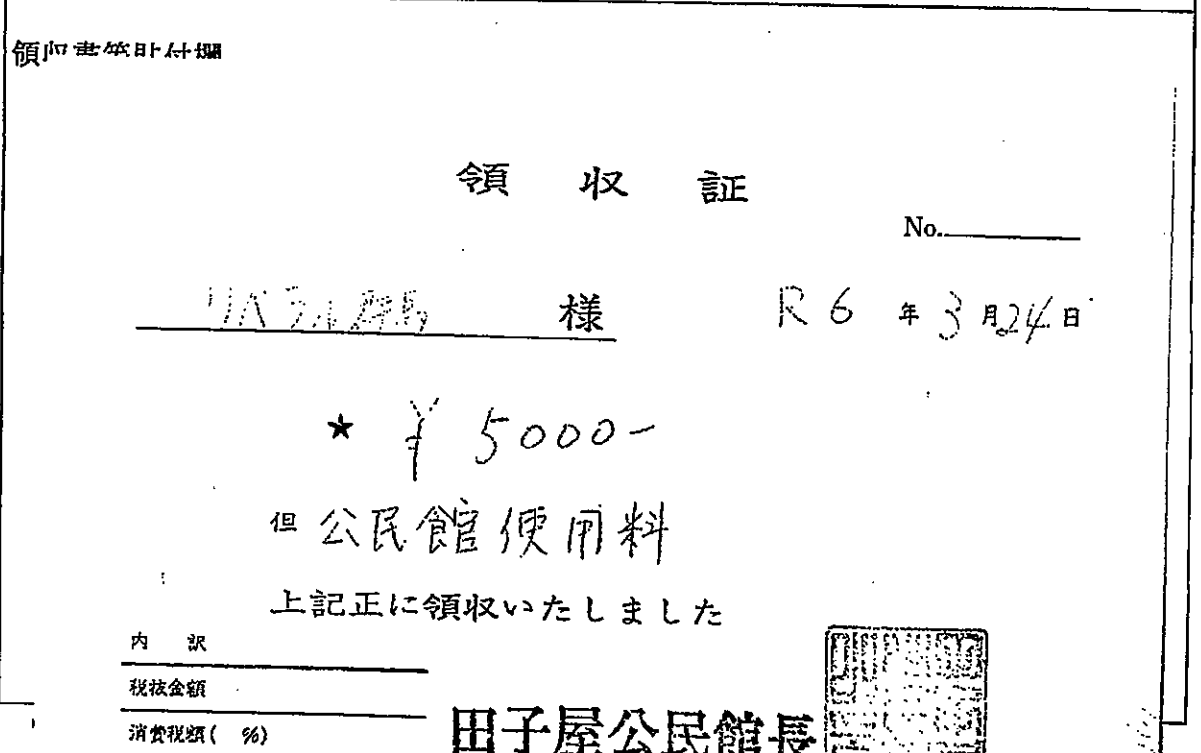 領収書等貼付欄
領収証
No.
リベラル群馬 様
R6年3月24日
★ ¥5000-
但 公民館使用料
上記正に領収いたしました
内訳
税抜金額
消費税額( %)
田子屋公民館長